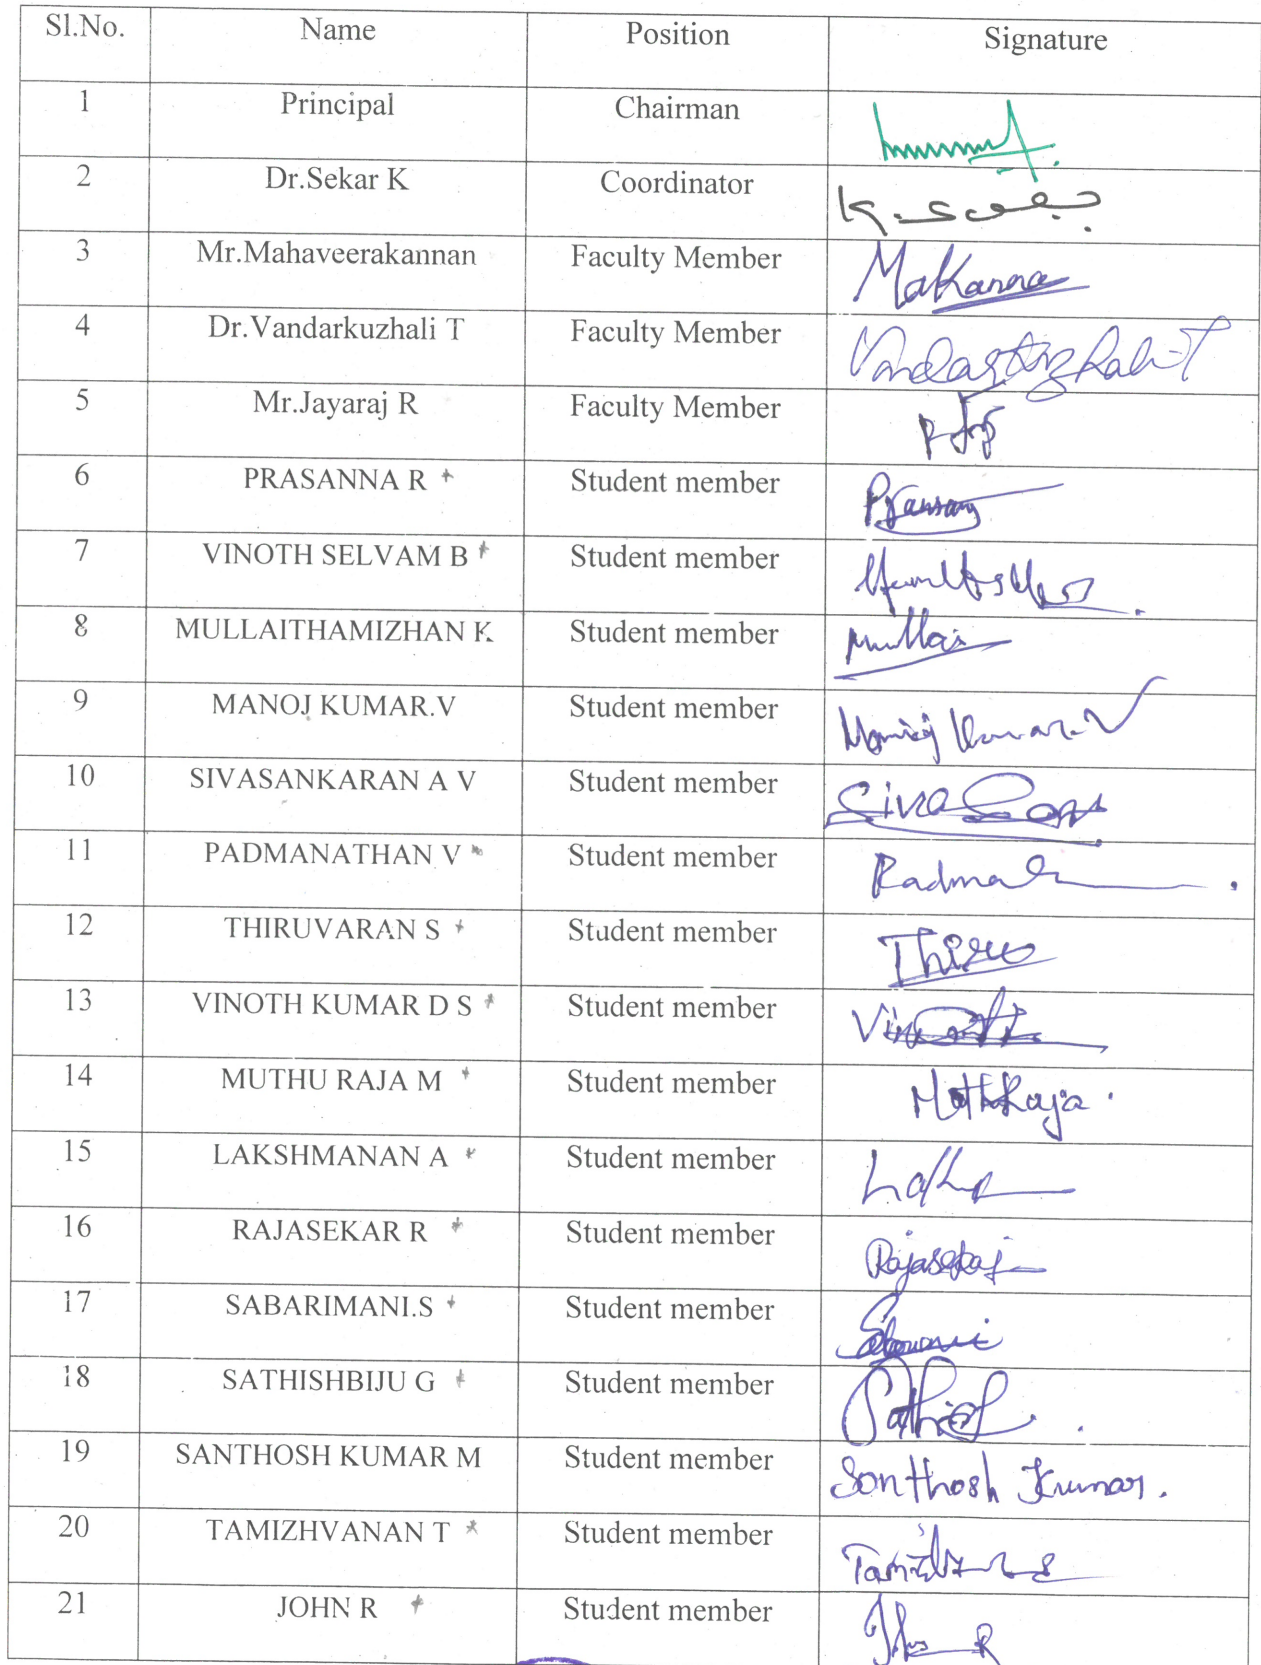 Sl.No. Name Position Signature
1 Principal Chairman
2 Dr.Sekar K Coordinator K. Sekar
3 Mr.Mahaveerakannan Faculty Member Makanna
4 Dr.Vandarkuzhali T Faculty Member Vandarkuzhali T
5 Mr.Jayaraj R Faculty Member
6 PRASANNA R Student member
7 VINOTH SELVAM B Student member
8 MULLAITHAMIZHAN K Student member Mullai
9 MANOJ KUMAR.V Student member Manoj Kumar.V
10 SIVASANKARAN A V Student member
11 PADMANATHAN V Student member
12 THIRUVARAN S Student member Thiru
13 VINOTH KUMAR D S Student member
14 MUTHU RAJA M Student member
15 LAKSHMANAN A Student member
16 RAJASEKAR R Student member Rajasekar
17 SABARIMANI.S Student member
18 SATHISHBIJU G Student member Sathish
19 SANTHOSH KUMAR M Student member Santhosh Kumar.
20 TAMIZHVANAN T Student member
21 JOHN R Student member